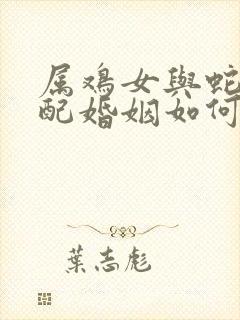 属鸡女與蛇
配婚姻如何
葉志彪